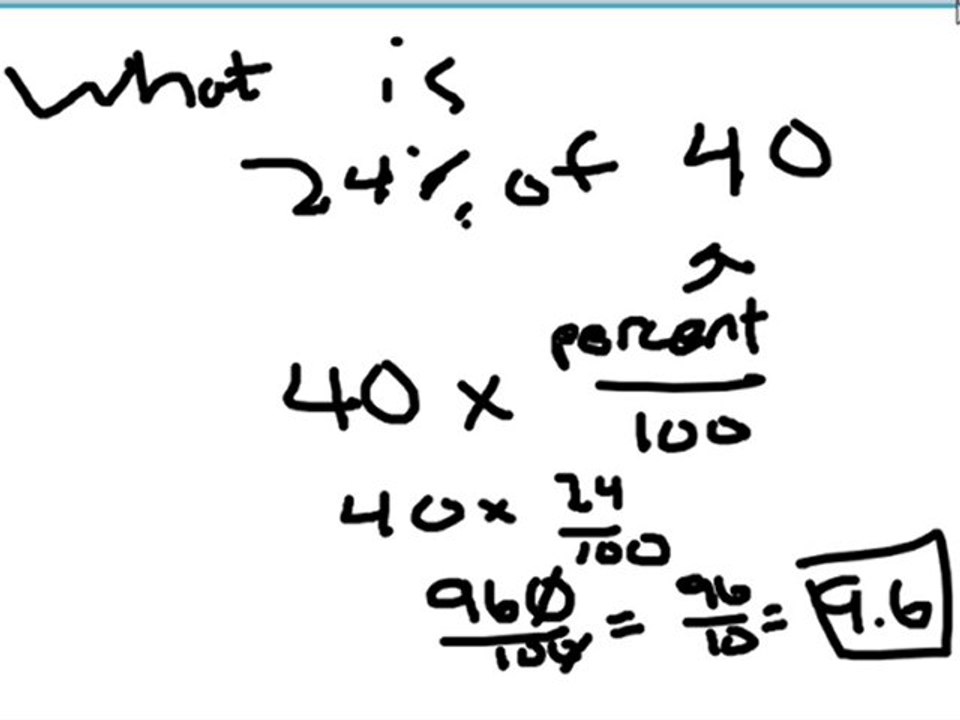 What is
24% of 40
percent
40 x
100
40 x 24/100
960/100 = 96/10 = 9.6